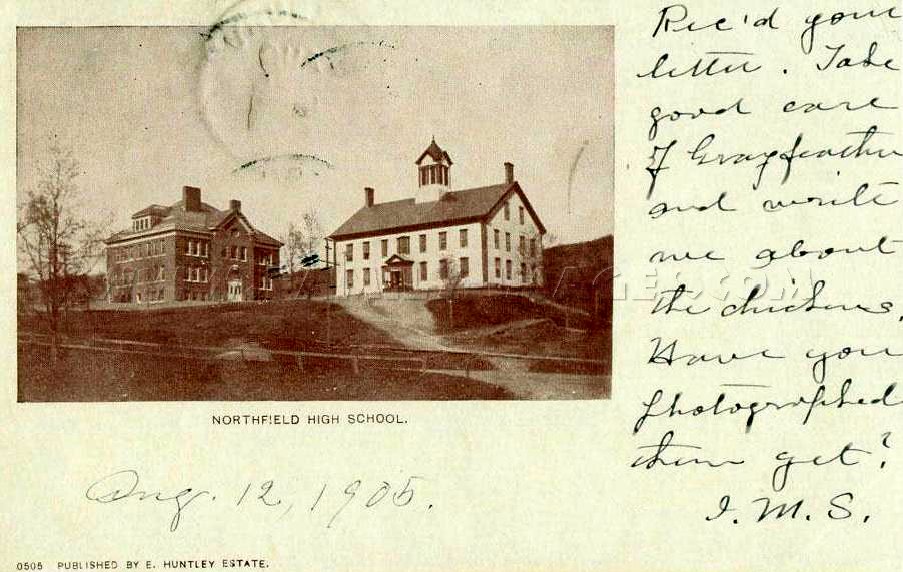 Rec'd your
letter. Take
good care
of Grayfeather
and write
me about
the chickens.
Have you
photographed
them yet?
I. M. S.
NORTHFIELD HIGH SCHOOL.
Aug. 12, 1905.
0505 PUBLISHED BY E. HUNTLEY ESTATE.